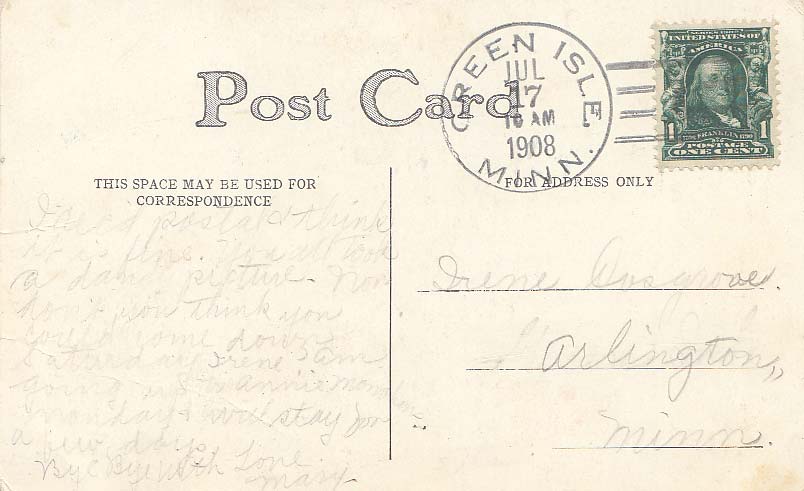 Post Card
GREEN ISLE.
JUL
17
10 AM
1908
MINN.
SERIES 1902
UNITED STATES OF
AMERICA
1 FRANKLIN 1
POSTAGE
ONE CENT
THIS SPACE MAY BE USED FOR
CORRESPONDENCE
FOR ADDRESS ONLY
postal & think
it is fine. You all took
a dandy picture. Now
don't you think you
could come down
Saturday Irene am
going up to Annie
Monday & will stay for
a few days
Bye Bye with Love
Mary
Irene Cosgrove.
Arlington,
Minn.